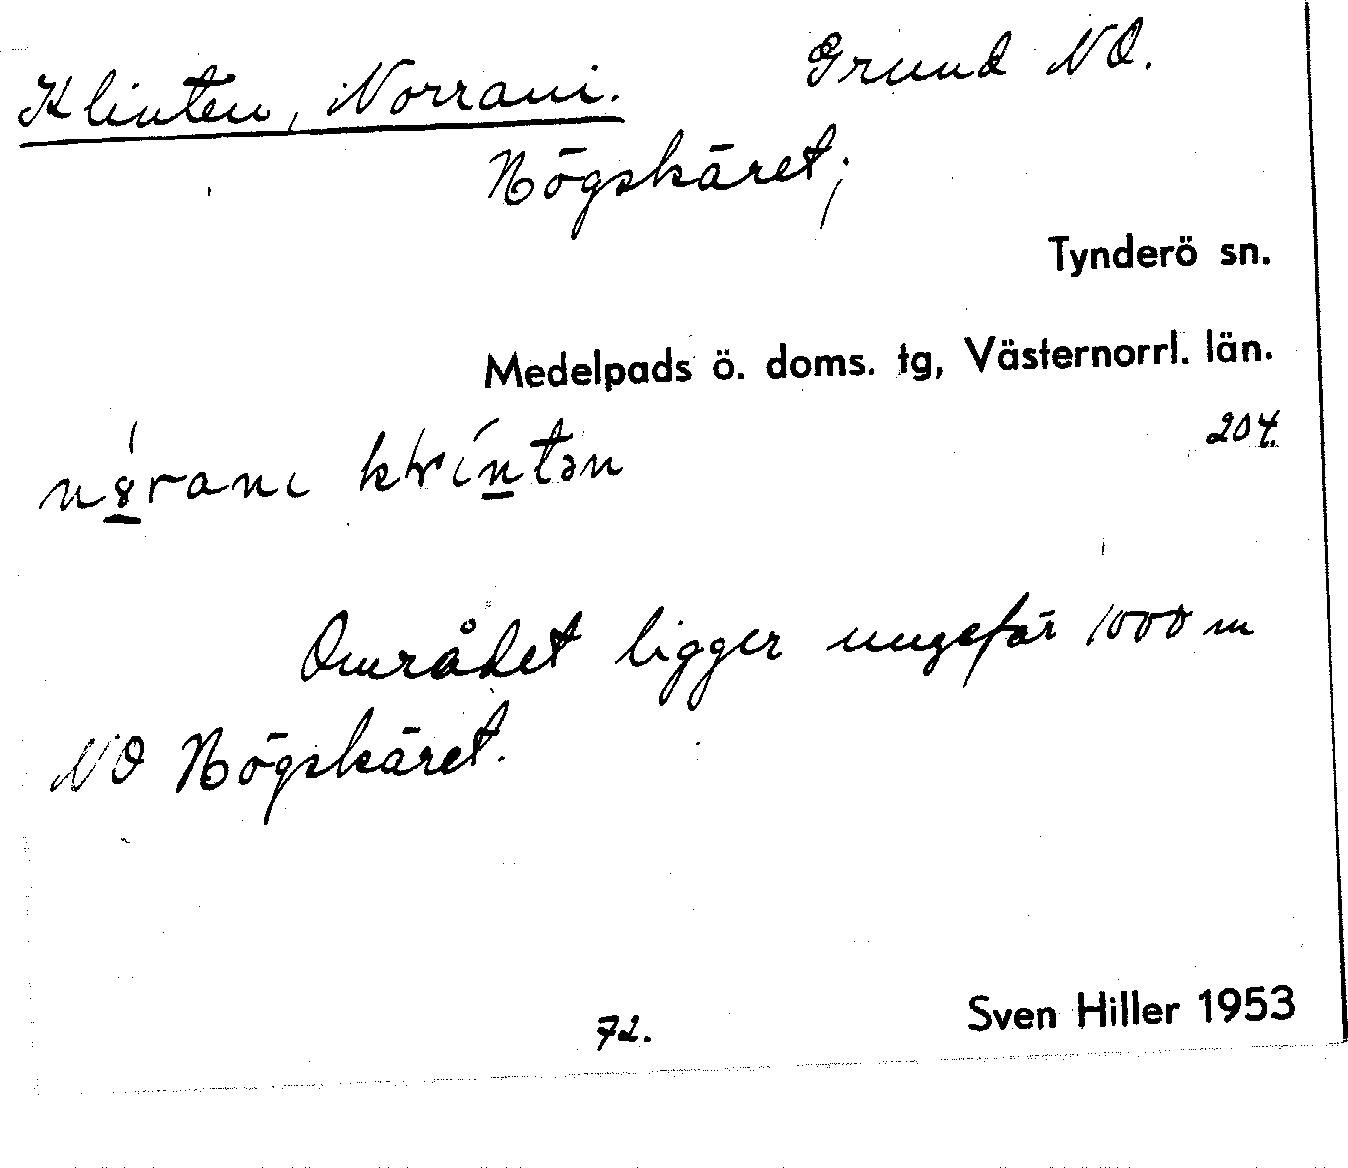 Klinten, Norrani. Grund NO.
Högskäret;
Tynderö sn.
Medelpads ö. doms. tg, Västernorrl. län.
204.
Området ligger ungefär 1000 m
NO Högskäret.
72.
Sven Hiller 1953